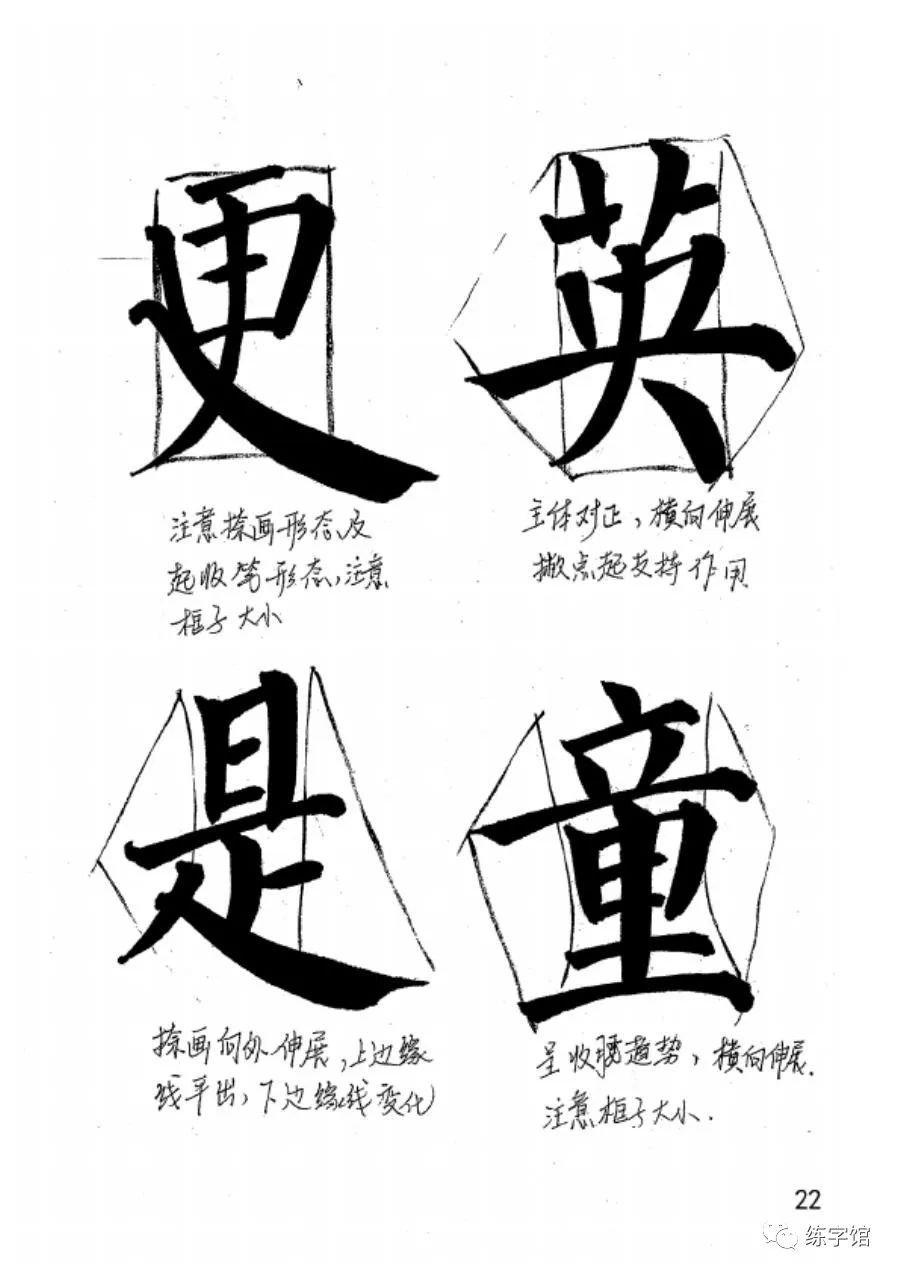 更
英
注意捺画形态及
起收笔形态,注意
框子大小
主体对正,横向伸展
撇点起支持作用
是
童
捺画向外伸展,上边缘
线平出,下边缘线变化
呈收腰趋势,横向伸展.
注意框子大小.
22
练字馆